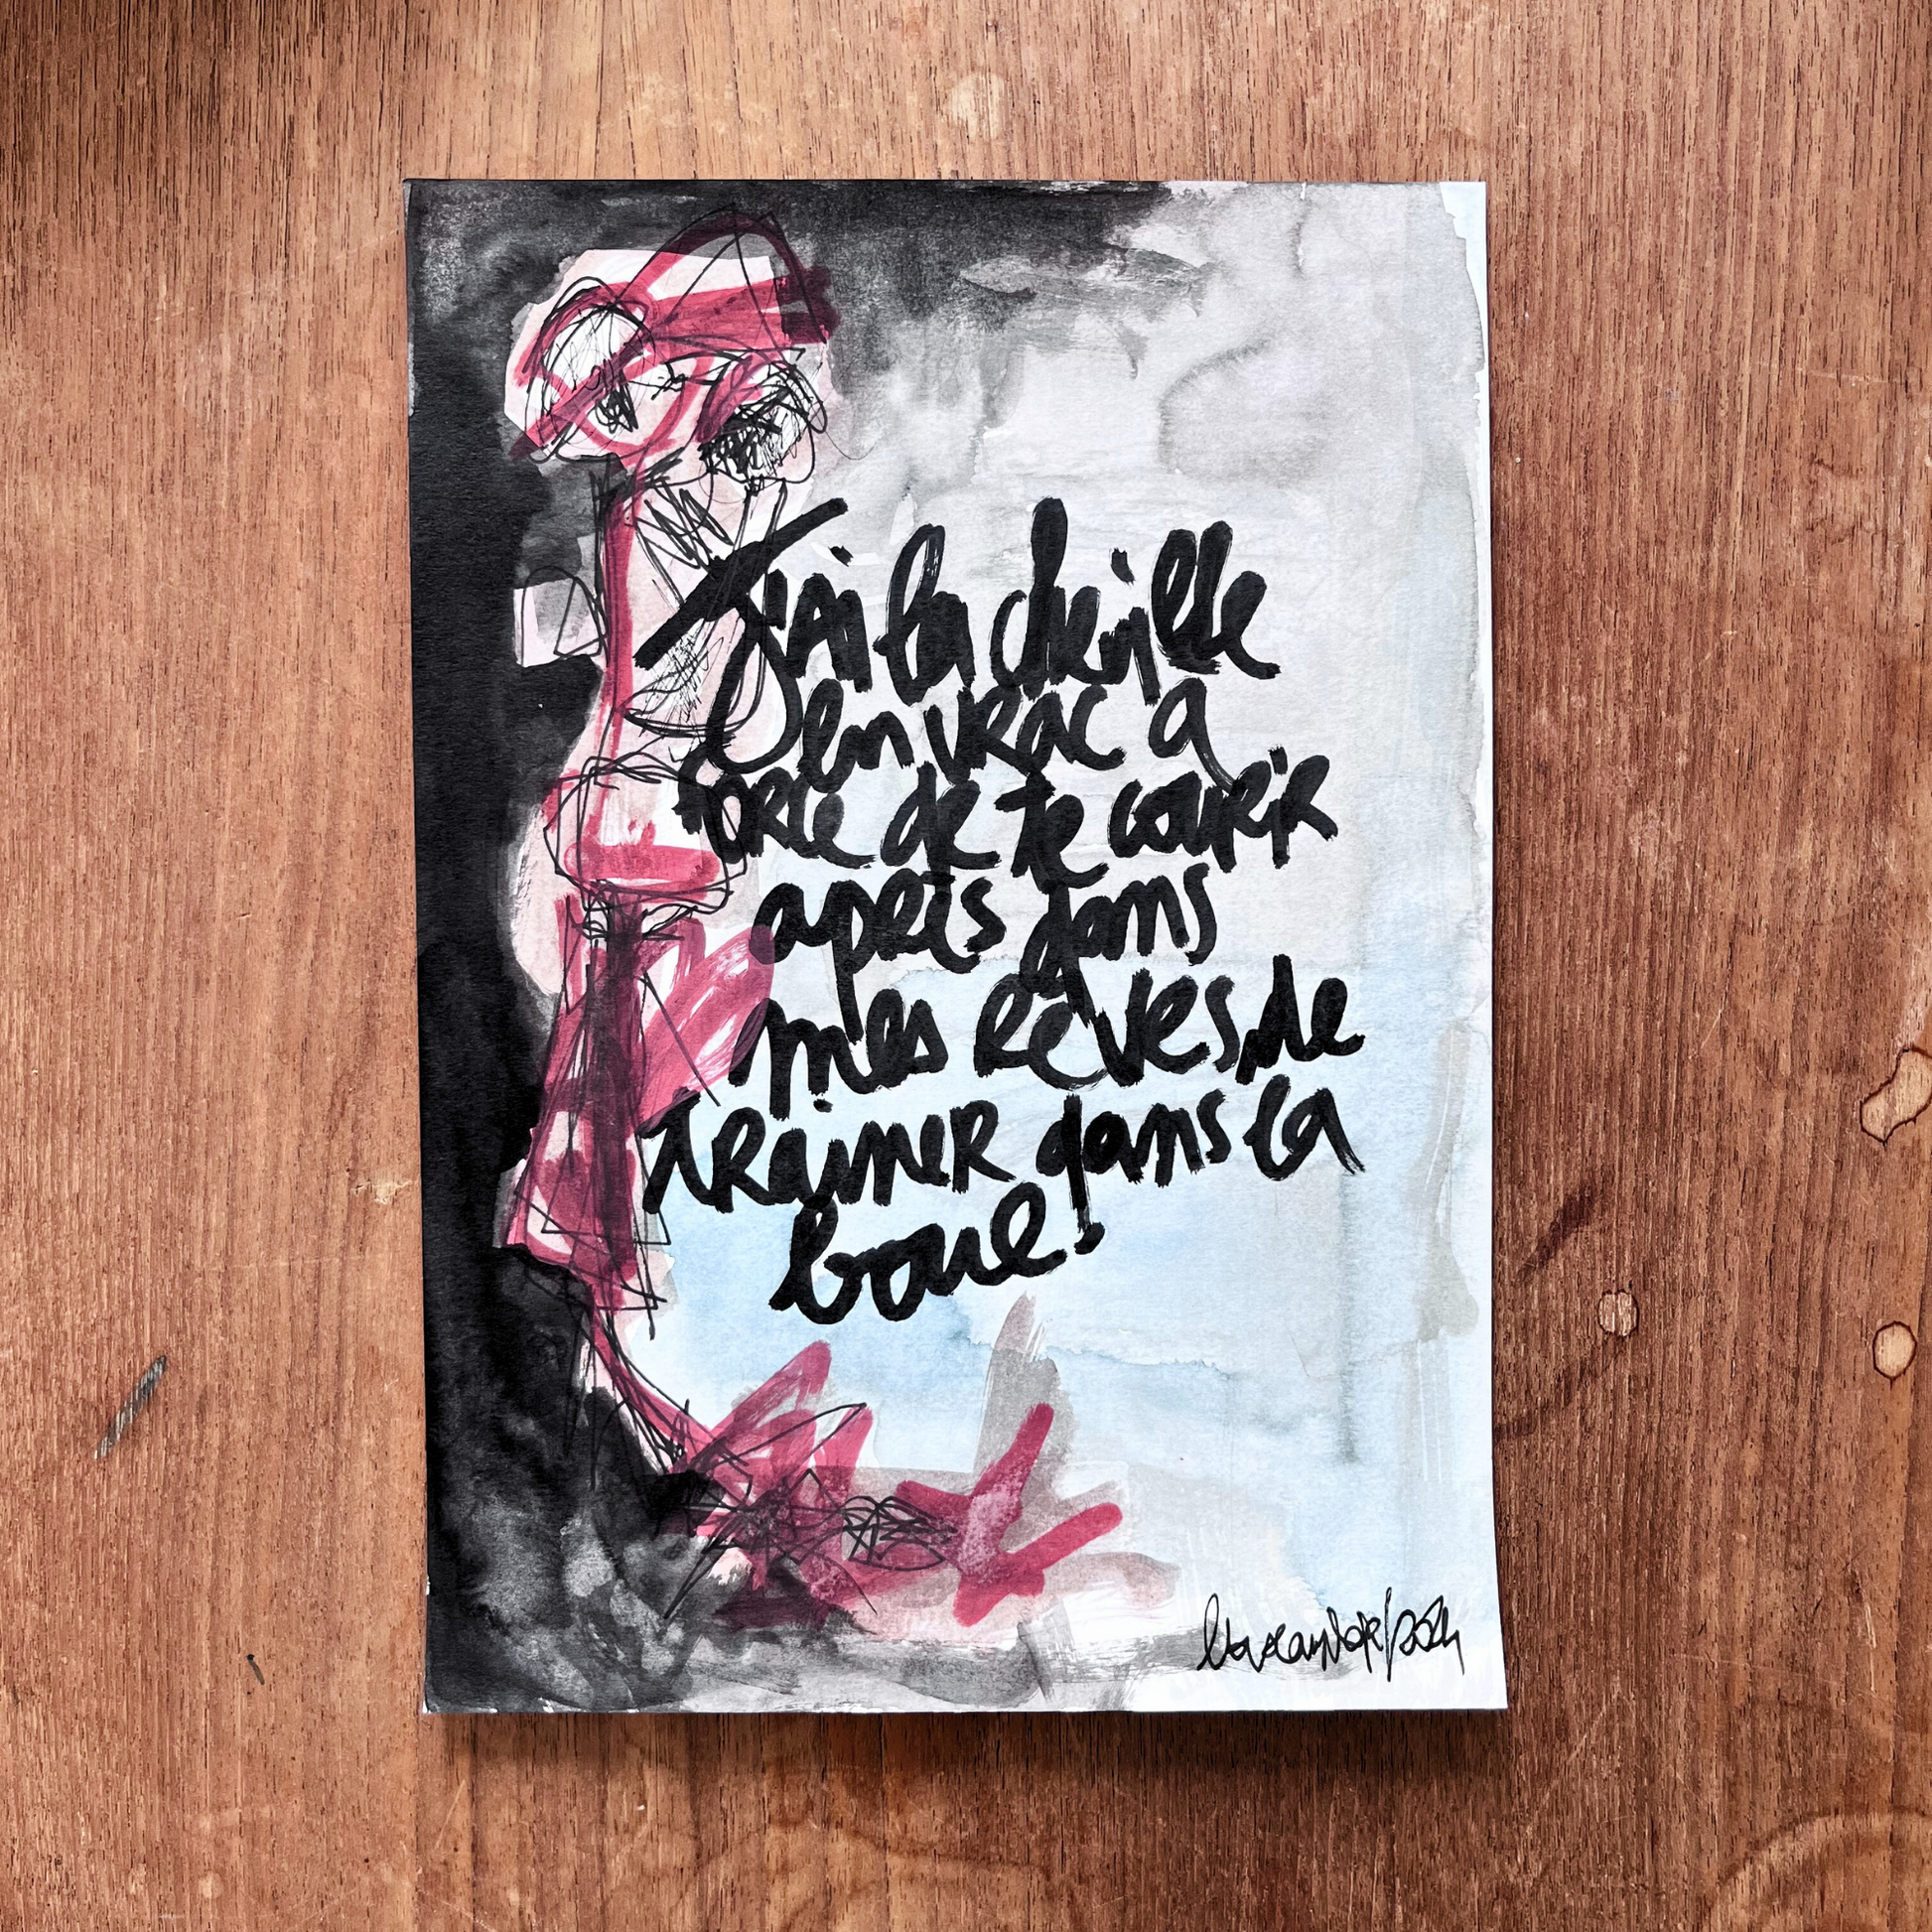 J'ai la cheville
en vrac a
force de te courir
après dans
mes rêves de
trainer dans la
boue.